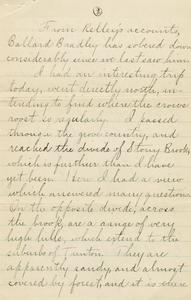 3
From Kelley's accounts,
Ballard Bradley has sobered down
considerably since we last saw him.
I had an interesting trip
today, went directly north, in-
tending to find where the crows
roost regularly. I passed
through the grove country, and
reached the divide of Stony Brook,
which is further than I have
yet been. Here I had a view
which answered many questions.
On the opposite divide, across
the brook, are a range of very
high hills, which extend to the
suburbs of Taunton. They are
apparently sandy, and almost
covered by forest, and it is where